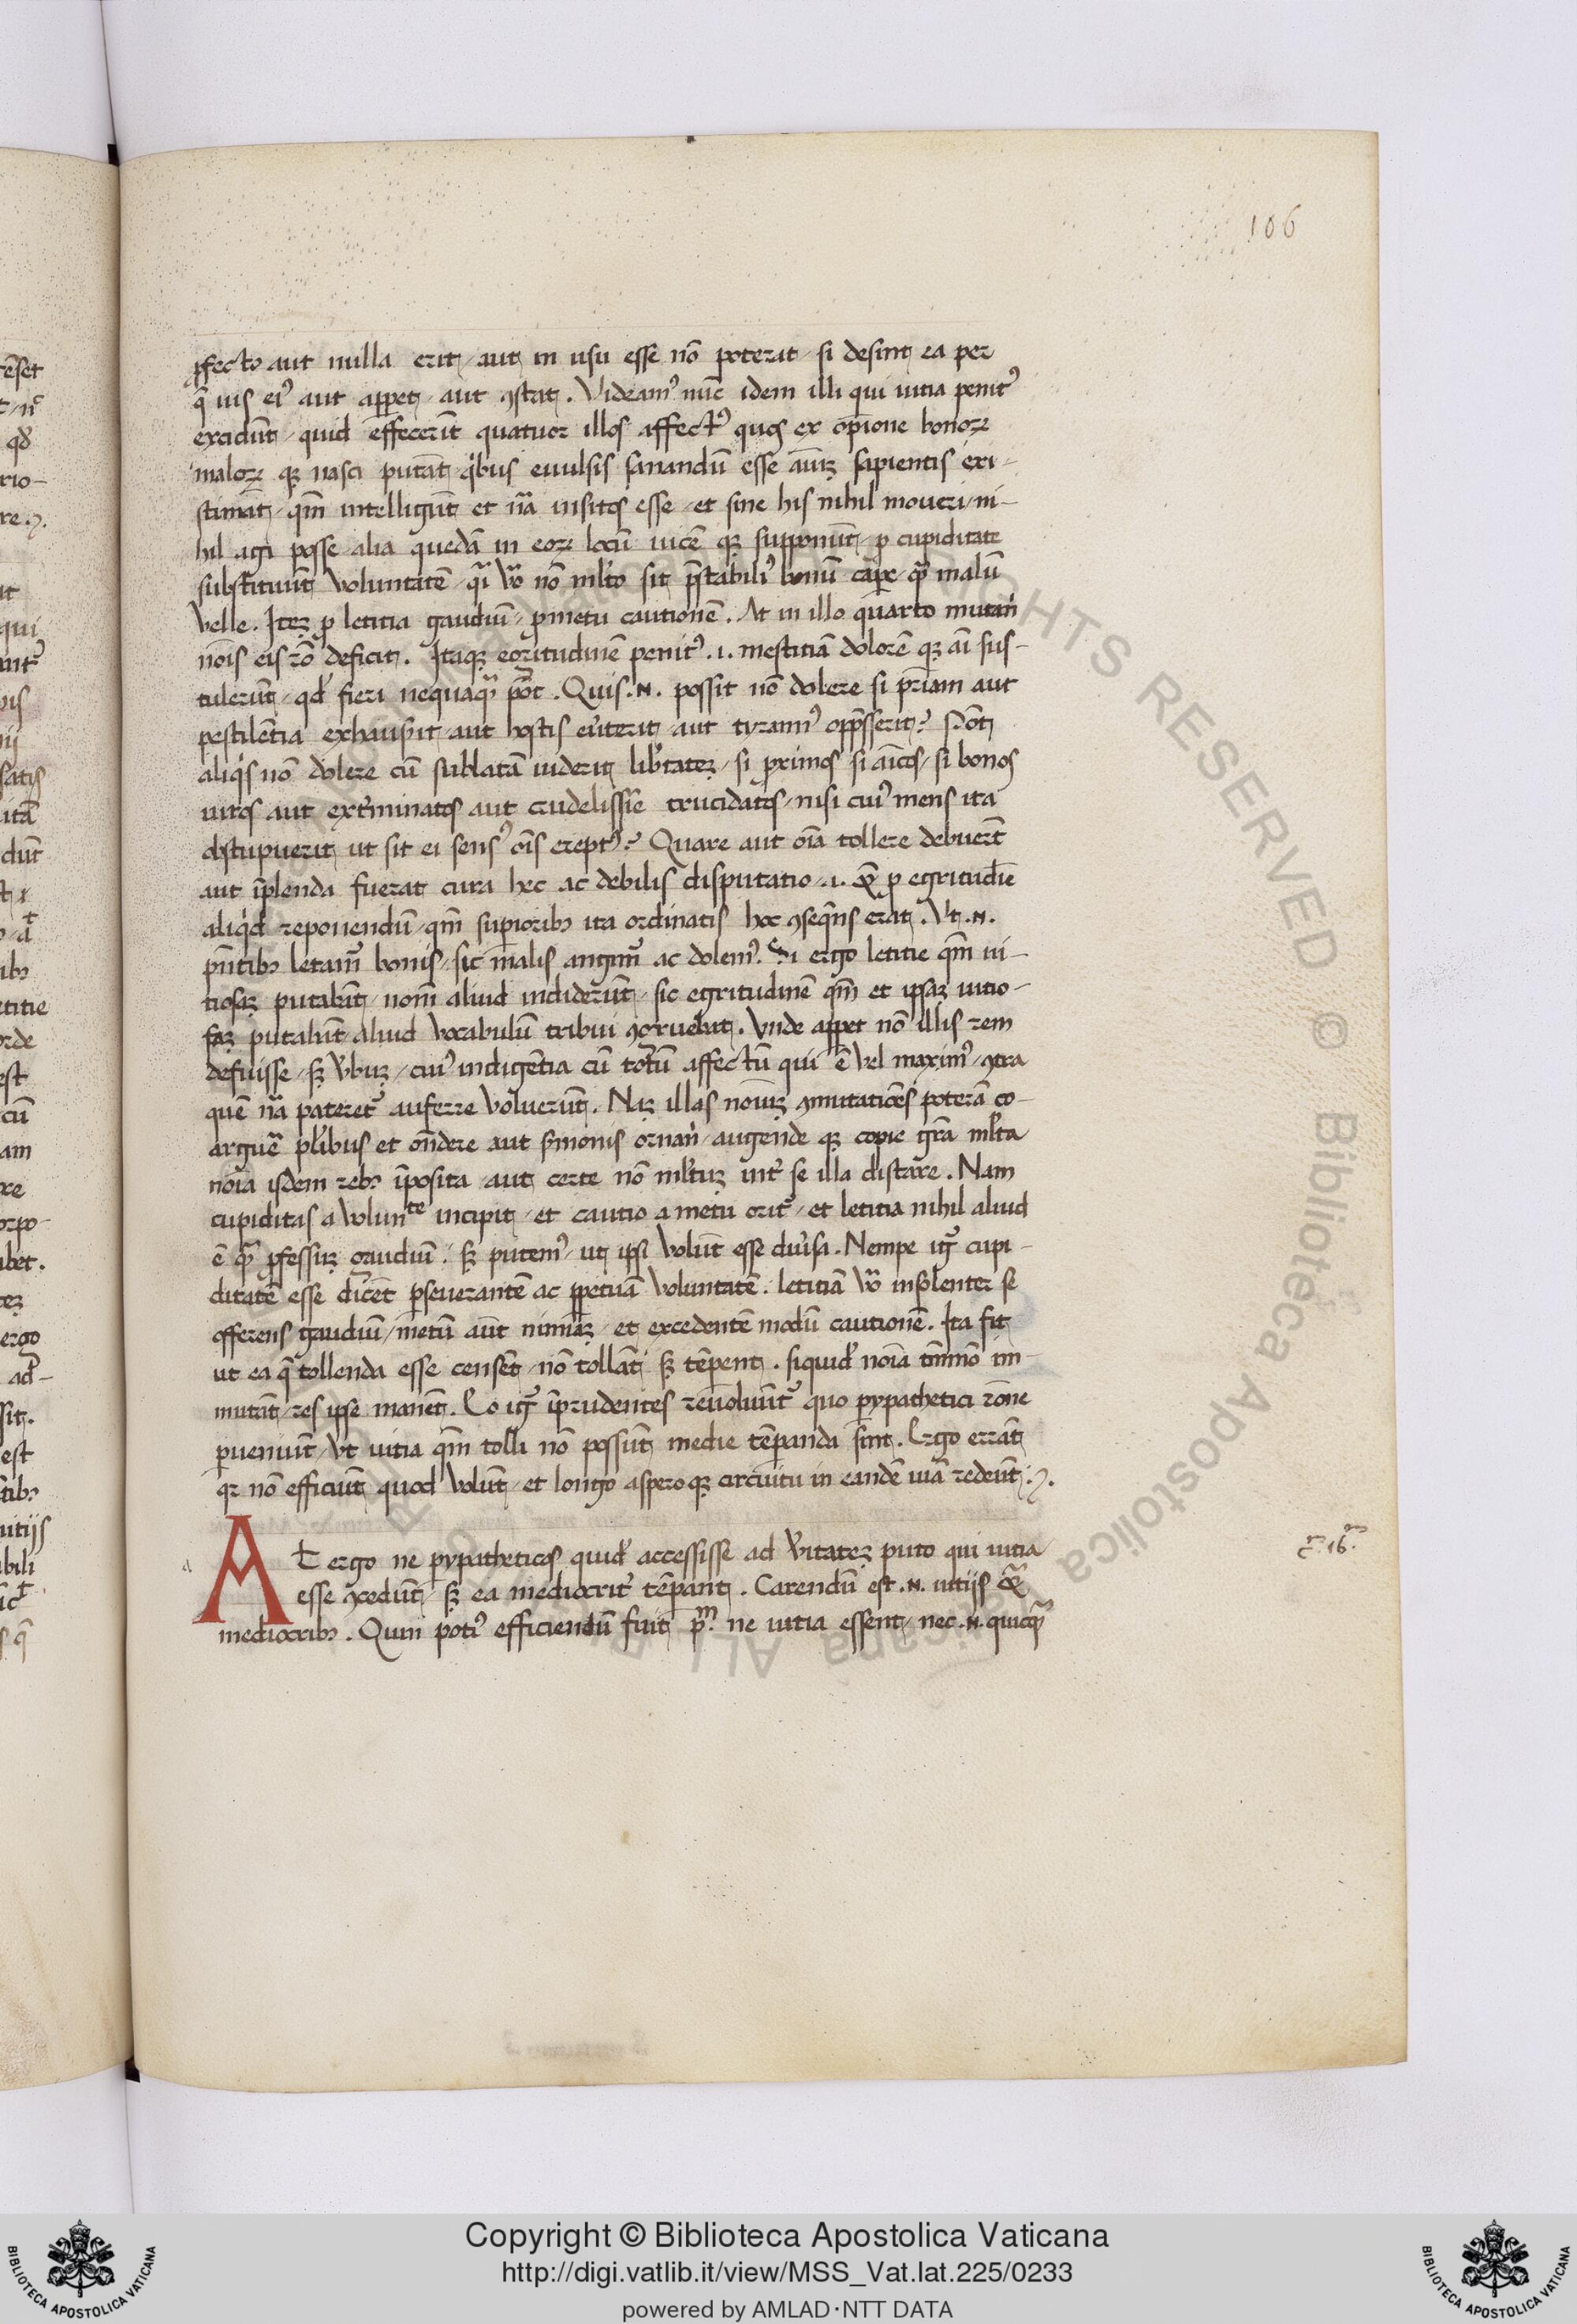 106
ꝓfecto aut nulla erit / aut in usu esse nō poterit / si desint ea per
q̄ uis eiꝰ aut apparet / aut ꝯstat . Videamꝰ nūc idem illi qui uitia penitꝰ
excidūt / quid effecerīt quatuor illos affectꝰ quos ex opīone bonoꝝ
maloꝝ qꝫ nasci putāt qͥbus euulsis sanandū esse aīuꝫ sapientis exi-
stimāt / qm̄ intelligūt et nā̄ insitos esse / et sine his nihil moueri / ni-
hil agi posse alia quedā in eoꝝ locū uicē qꝫ supponūt / ꝓ cupiditate
substituūt voluntatē / qͣi vͦo nō ml̄to sit p̄stabiliꝰ bonū capere qͣꝫ malū
velle . Iteꝫ ꝓ letitia gaudiū / ꝓ metu cautionē . At in illo quarto mutan̄
nōis eis rō deficit . Itaqꝫ egritudinē penitꝰ .i. mestitiā dolorē qꝫ aī sus-
tulerūt / qd̓ fieri nequaqͣꝫ pōt . Quis .N. possit nō dolere si pr̄iam aut
pestilētia exhauserit aut hostis eūterit / aut tyrannꝰ opp̄sserit ? Pōt
aliqͥs nō dolere cū sublatā uiderit lib̓tateꝫ / si ꝓximos si aīcos / si bonos
uiros aut ext̓minatos aut crudelissīe trucidatos / nisi cuiꝰ mens ita
obstupuerit ut sit ei sensꝰ oīs ereptꝰ ? Quare aut oīa tollere debuerūt
aut īplenda fuerat cura hec ac debilis disputatio .i. & ꝓ egritudīe
aliqͥd reponendū / qm̄ supioribꝰ ita ordinatis hoc ꝯseq̄ns erat . Vt .N.
p̄ntibꝰ letamͬ bonis / sic malis angimͬ ac dolemꝰ . Si ergo letitie qm̄ ui-
tiosaꝫ putabāt / nomē aliud indiderūt / sic egritudinē qm̄ et ipsaꝫ uitio-
saꝫ putabāt aliud vocabulū tribui ꝯgruebat . Vnde appet nō illis rem
defuisse / sꝫ v̓buꝫ / cuiꝰ indigētia cū totū affectū qui ē vel maximꝰ / ꝯtra
quē nā̄ pateretͬ auferre voluerūt . Naꝫ illas noīuꝫ ꝯmutatiōes poterā co-
arguē̓ pl̓ibus et on̄dere aut ẜmonis ornan̄ / augende qꝫ copie gr̄a ml̓ta
noīa isdem rebꝰ īposita / aut certe nō ml̓tuꝫ int̓ se illa distare . Nam
cupiditas a volunte incipit / et cautio a metu oritͬ / et letitia nihil aliud
ē qͣꝫ ꝓfessuꝫ gaudiū . sꝫ putemꝰ / ut ipsi volūt esse diu̓sa . Nempe igͬ cupi-
ditatē esse dicēt ꝑseuerantē ac ꝑpetuā voluntatē . letitiā vͦo insolenter se
offerens gaudiū / metū aūt nimiaꝫ / et excedentē modū cautionē . Ita fit
ut ea q̄ tollenda esse censēt / nō tollāt / sꝫ tēpent . siquid̓ noīa tm̄mō im-
mutāt / res ipse manēt . Eo igͬ īprudentes reuoluūtͬ quo perypathetici rōne
perueniūt / vt uitia qm̄ tolli nō possūt medie tēperanda sint . Ergo errāt
qꝛ nō efficiūt quod volūt / et longo aspero qꝫ circuitu in eandē uiā redeūt .
AT ergo ne perypatheticos quid̓ accessisse ad v̓itateꝫ puto qui uitia
esse ꝯcedūt / sꝫ ea mediocrit̓ tēpant . Carendū est .N. uitijs &
mediocribꝰ . Quin potiꝰ efficiendū fuit pm . ne uitia essent / nec .N. quicqͣꝫ
Copyright © Biblioteca Apostolica Vaticana
http://digi.vatlib.it/view/MSS_Vat.lat.225/0233
powered by AMLAD·NTT DATA
BIBLIOTECA APOSTOLICA VATICANA
BIBLIOTECA APOSTOLICA VATICANA